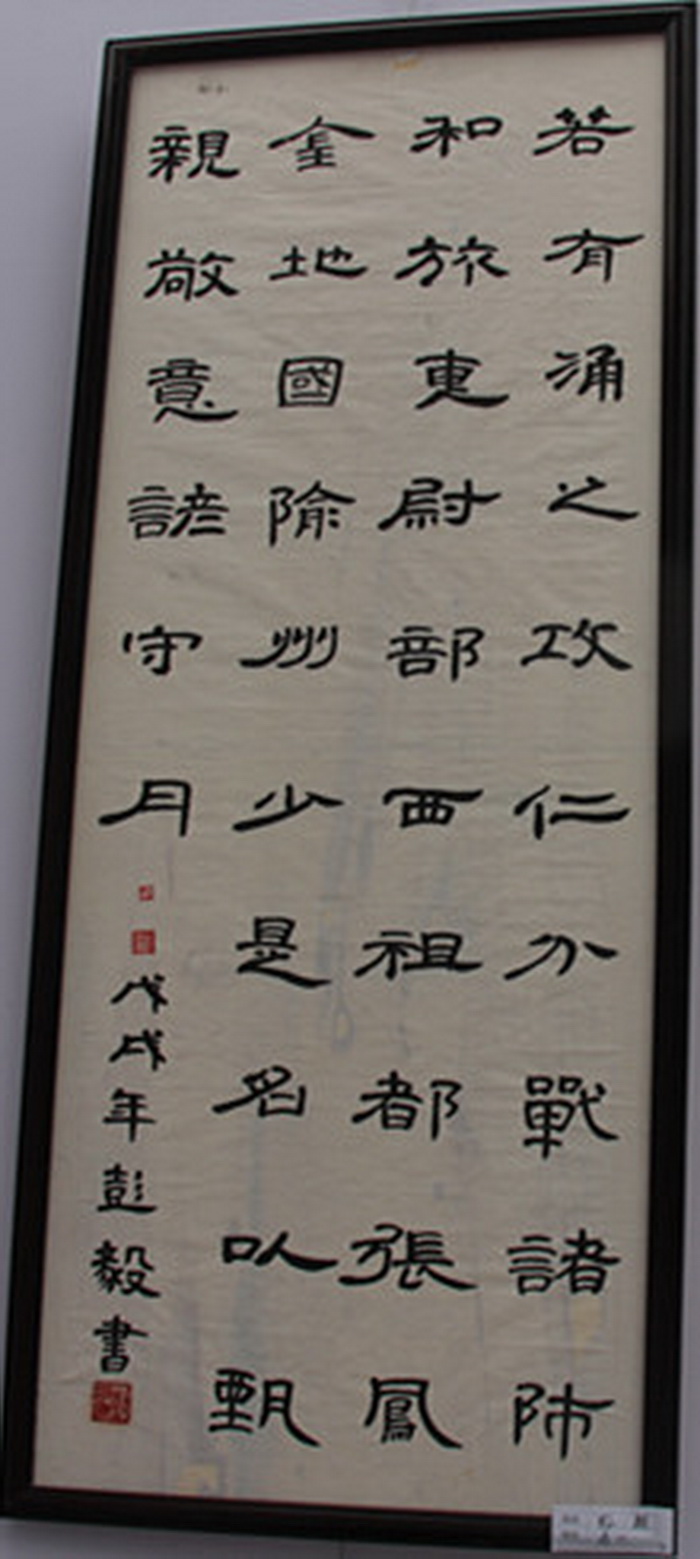 若有涌之攻仁分戰諸師
和旅東尉部西祖都張鳳
金地國險州少是名以甄
親敬意諺守月
戊戌年彭毅書